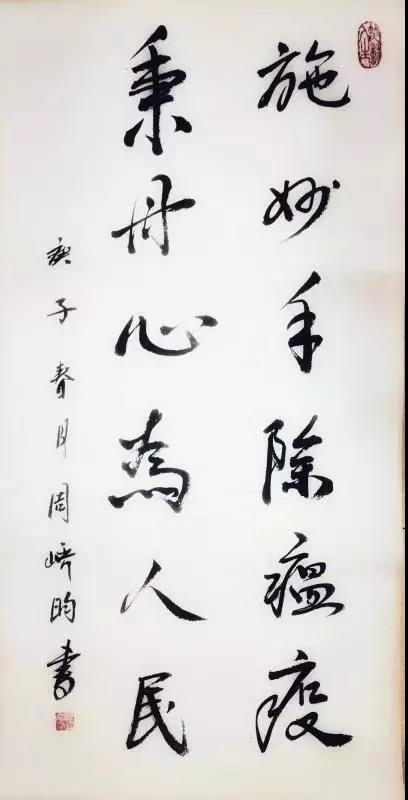 施妙手除瘟疫
秉丹心為人民
庚子春月周嶠昀書